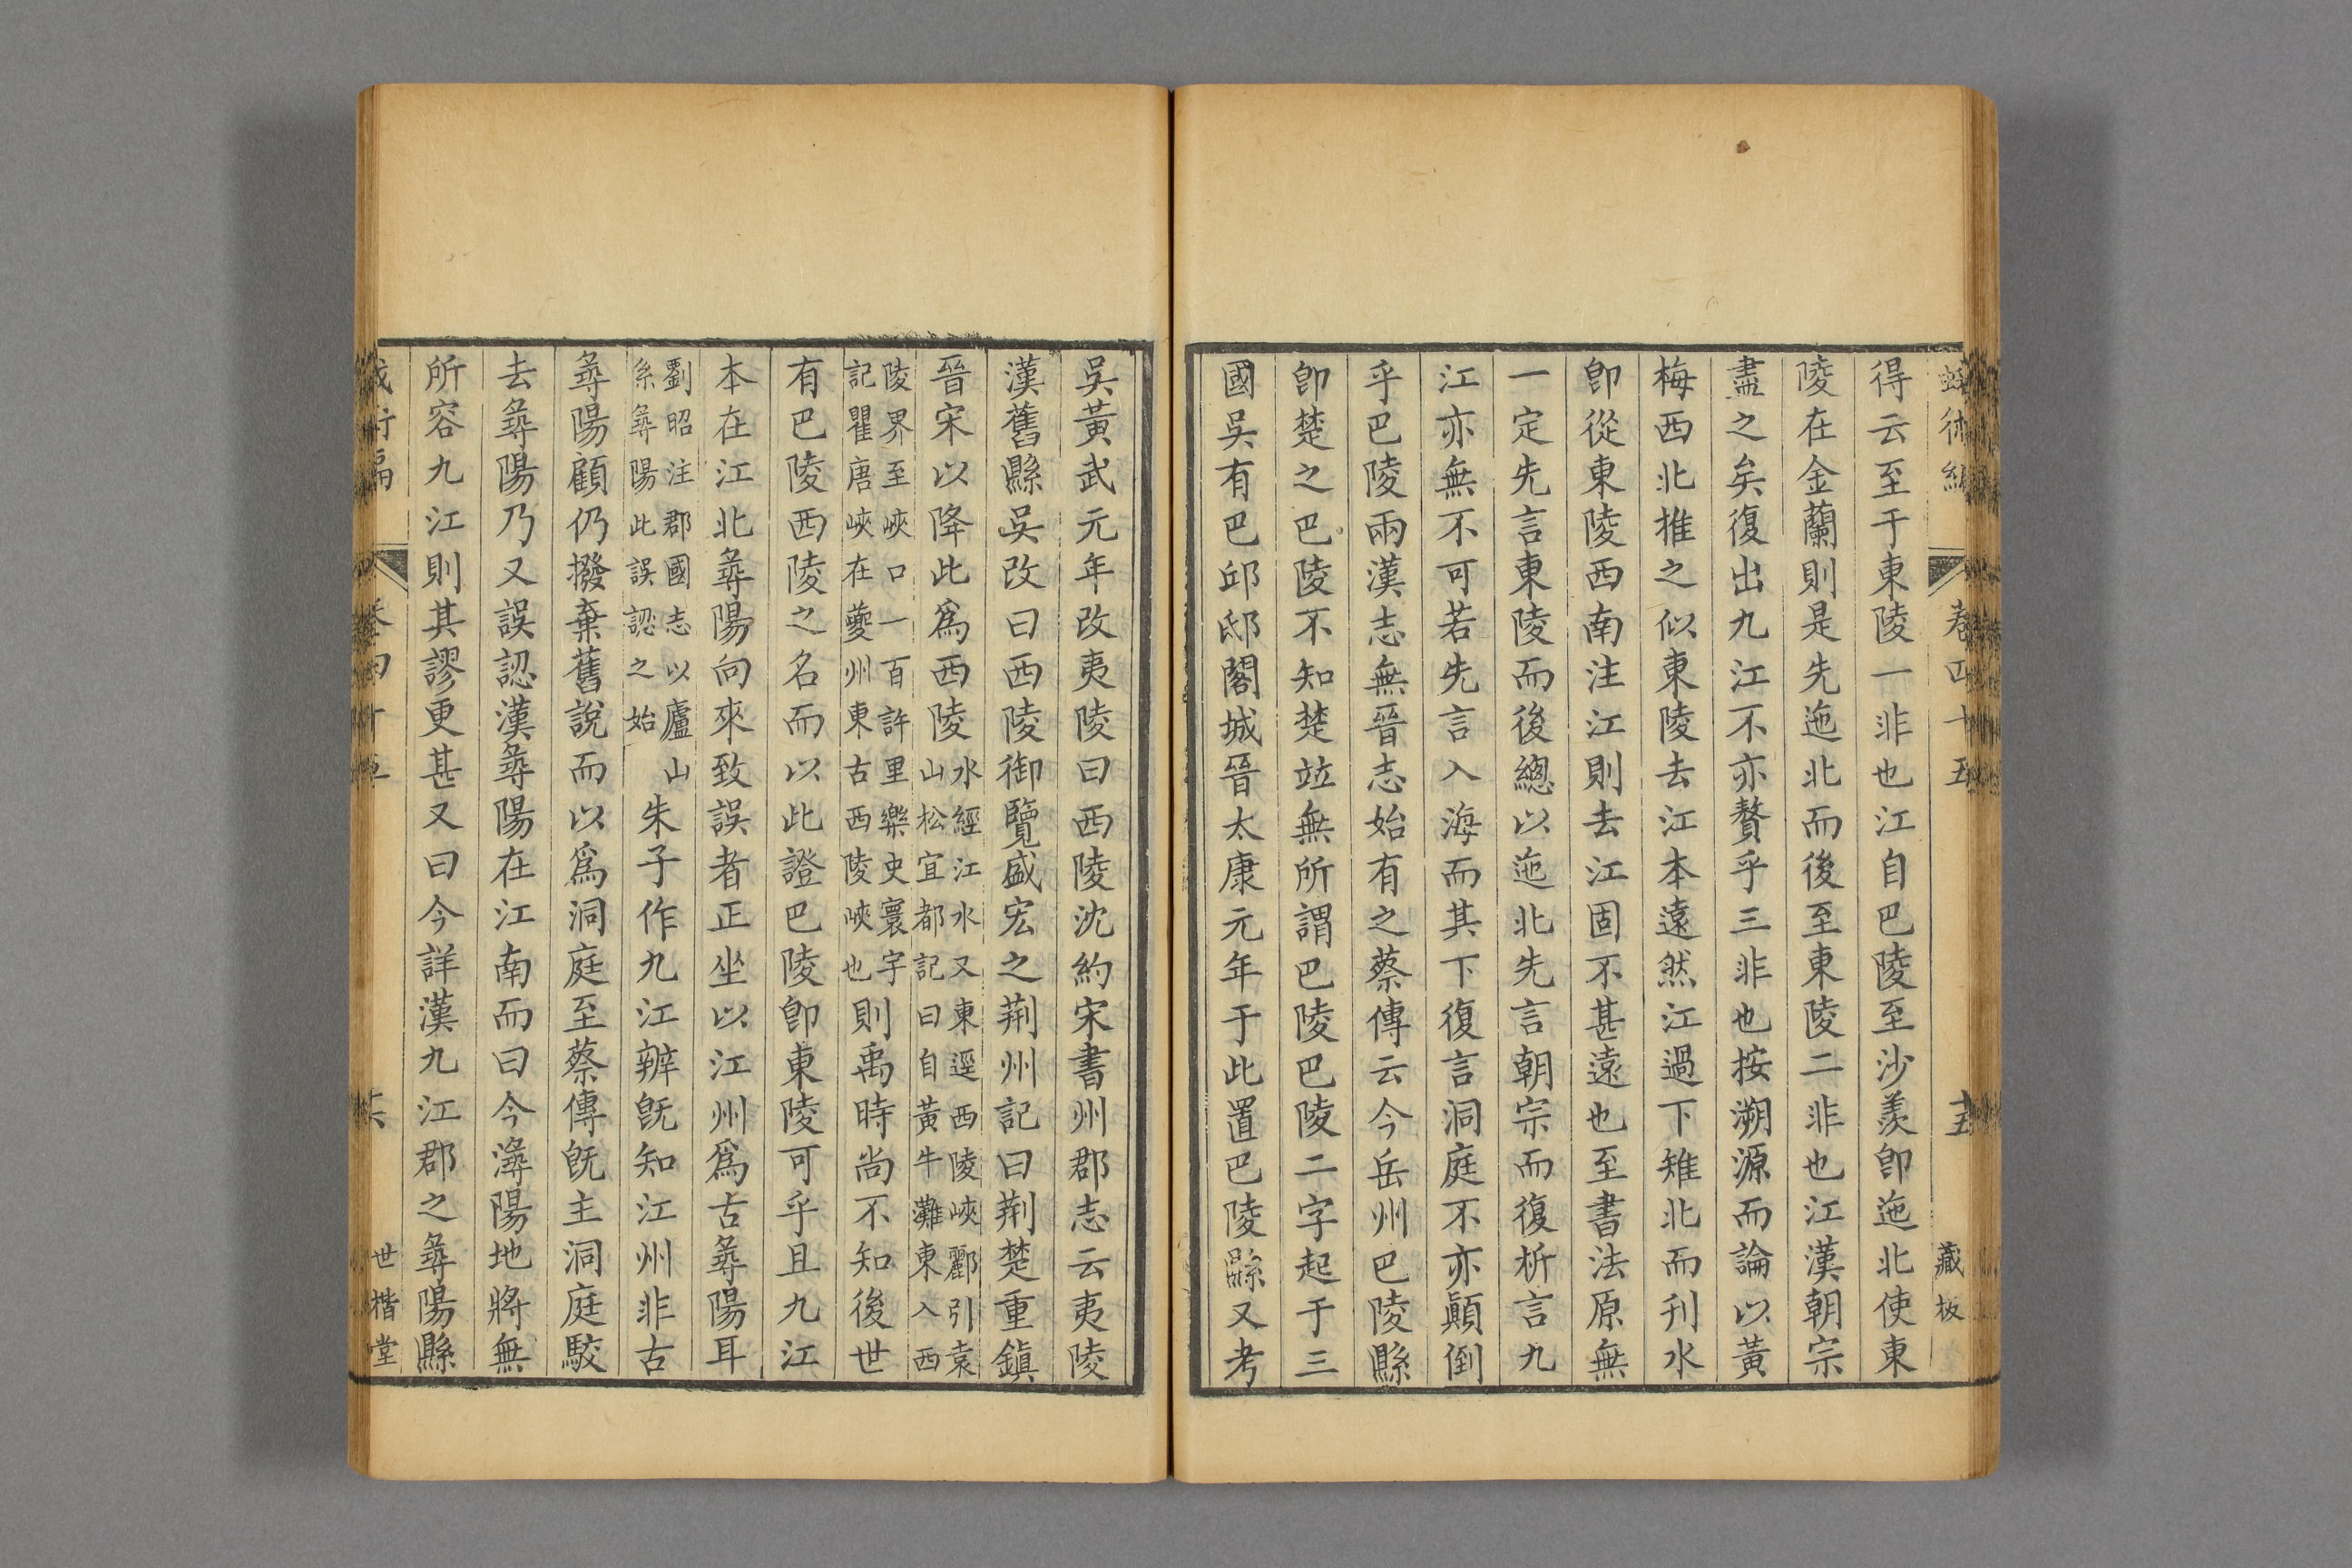 蛾術編 卷四十五 十五 藏板
得云至于東陵一非也江自巴陵至沙羨卽迤北使東
陵在金蘭則是先迤北而後至東陵二非也江漢朝宗
盡之矣復出九江不亦贅乎三非也按溯源而論以黃
梅西北推之似東陵去江本遠然江過下雉北而刋水
卽從東陵西南注江則去江固不甚遠也至書法原無
一定先言東陵而後總以迤北先言朝宗而復析言九
江亦無不可若先言入海而其下復言洞庭不亦顚倒
乎巴陵兩漢志無晉志始有之蔡傳云今岳州巴陵縣
卽楚之巴陵不知楚竝無所謂巴陵巴陵二字起于三
國吳有巴邱邸閣城晉太康元年于此置巴陵縣又考
吳黃武元年改夷陵曰西陵沈約宋書州郡志云夷陵
漢舊縣吳改曰西陵御覽盛宏之荆州記曰荆楚重鎭
晉宋以降此爲西陵水經江水又東逕西陵峽酈引袁
山松宜都記曰自黃牛灘東入西
陵界至峽口一百許里樂史寰宇
記瞿唐峽在夔州東古西陵峽也則禹時尚不知後世
有巴陵西陵之名而以此證巴陵卽東陵可乎且九江
本在江北尋陽向來致誤者正坐以江州爲古尋陽耳
劉昭注郡國志以廬山
系尋陽此誤認之始朱子作九江辨旣知江州非古
尋陽顧仍撥棄舊說而以爲洞庭至蔡傳旣主洞庭駮
去尋陽乃又誤認漢尋陽在江南而曰今潯陽地將無
所容九江則其謬更甚又曰今詳漢九江郡之尋陽縣
世楷堂